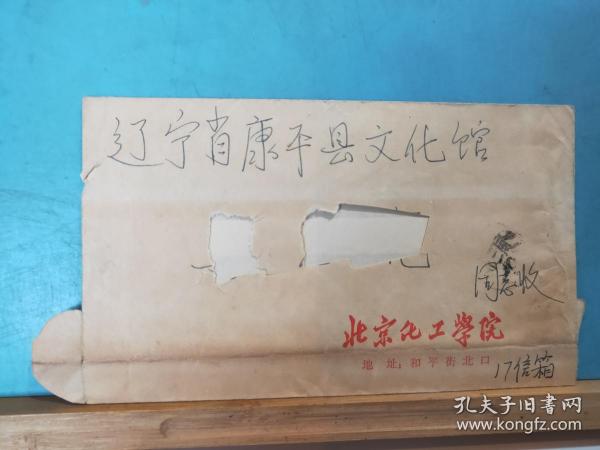 辽宁省康平县文化馆
同志收
北京化工學院
地址:和平街北口
17信箱
孔夫子旧书网
www.kongfz.com